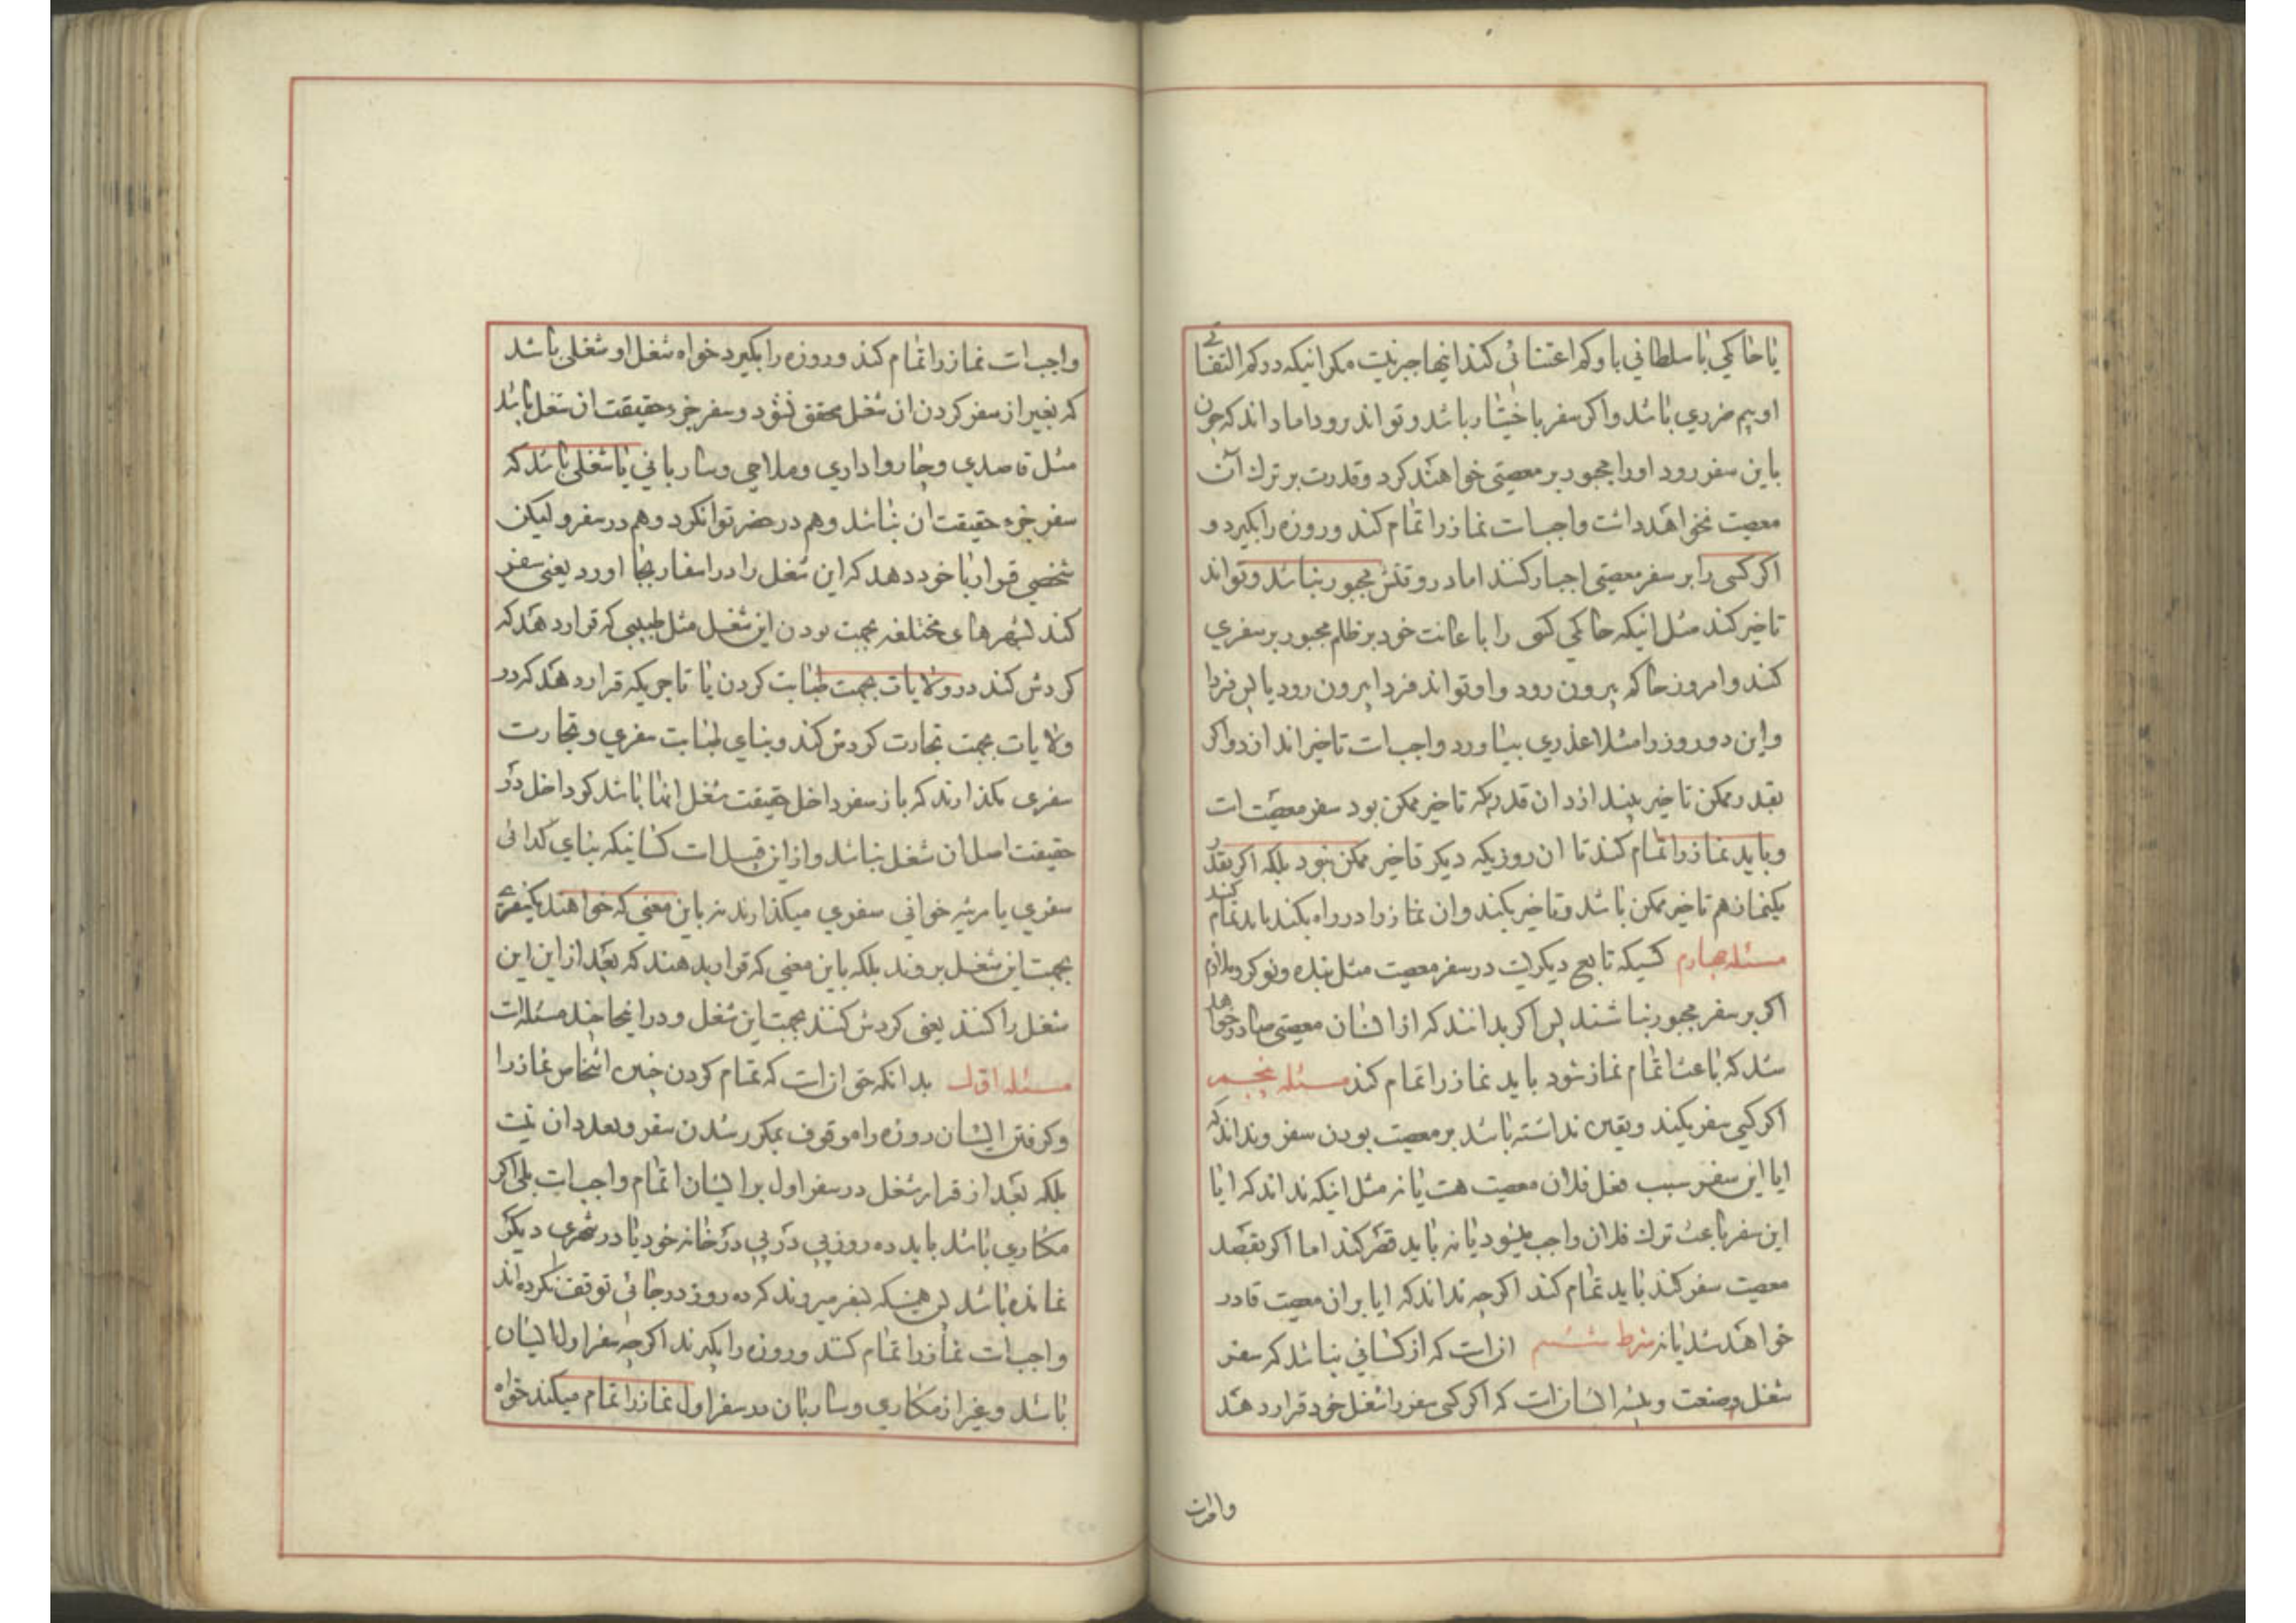 یا حاکمی یا سلطانی باو کم اعتنائی کند اینها جبر نیست مکر انیکه در کم التفاتی
او بیم ضرری باشد و اکر سفر باختیار باشد و تواند نرود اما داند که چون
باین سفر رود او را مجبور بر معصیتی خواهند کرد و قدرت بر ترک آن
معصیت نخواهد داشت واجبست نماز را تمام کند و روزه را بکیرد و
اکر کسی را بر سفر معصیتی اجبار کنند اما در وقتش مجبور نباشد و تواند
تاخیر کند مثل انیکه حاکمی کسی را با عانت خود بر ظلم مجبور بر سفری
کند و امروز حاکم بیرون رود و او تواند فردا بیرون رود یا پس فردا
و این دو روز را مثلا عذری بیاورد واجبست تاخیر اندازد و اکر
بقدر ممکن تاخیر نیندازد ان قدریکه تاخیر ممکن بود سفر معصیتست
و باید نماز را تمام کند تا ان روزیکه دیکر تاخیر ممکن نبود بلکه اکر بقدر
یکنماز هم تاخیر ممکن باشد و تاخیر نکند و ان نماز را در راه بکند باید تمام کند
مسئله چهارم کسیکه تابع دیکریست در سفر معصیت مثل بنده و نوکر و ملازم
اکر بر سفر مجبور نباشند پس اکر بدانند که از ایشان معصیتی صادر خواهد
شد که باعث اتمام نماز شود باید نماز را تمام کند مسئله پنجم
اکر کسی سفر بکند و یقین نداشته باشد بر معصیت بودن سفر و نداند که
ایا این سفر سبب فعل فلان معصیت هست یا نه مثل اینکه نداند که ایا
این سفر باعث ترک فلان واجب میشود یا نه باید قصر کند اما اکر بقصد
معصیت سفر کند باید تمام کند اکرچه نداند که ایا بر ان معصیت قادر
خواهد شد یا نه شرط ششم انست که از کسانی نباشد که سفر
شغل و صنعت و پیشه ایشانست که اکر کسی سفر را شغل خود قرار دهد
واجبست نماز را تمام کند و روزه را بکیرد خواه شغل او شغلی باشد
که بغیر از سفر کردن ان شغل محقق نشود و سفر جزء حقیقت ان شغل باشد
مثل قاصدی و چارواداری و ملاحی و ساربانی یا شغلی باشد که
سفر جزء حقیقت ان نباشد و هم در حضر توان کرد و هم در سفر و لیکن
شخصی قرار با خود دهد که این شغل را در اسفار بجا اورد یعنی سفر
کند بشهرهای مختلفه بجهت بودن این شغل مثل طبیبی که قرار دهد که
کردش کند در ولایات بجهت طبابت کردن یا تاجریکه قرار دهد که در
ولایات بجهت تجارت کردش کند و بنای طبابت سفری و تجارت
سفری بکذارند که باز سفر داخل حقیقت شغل انها باشد کو داخل در
حقیقت اصل ان شغل نباشد و از این قبیلست کسانیکه بنای کدائی
سفری یا مرثیه خوانی سفری میکذارند نه باین معنی که خواهند یکسفری
بجهت این شغل بروند بلکه باین معنی که قرار بدهند که بعد از این این
شغل را کنند یعنی کردش کنند بجهت این شغل و در اینجا چند مسئله است
مسئله اول بدانکه حق انست که تمام کردن چنین اشخاص نماز را
و کرفتن ایشان روزه را موقوف بمکرر شدن سفر و تعدد ان نیست
بلکه بعد از قرار شغل در سفر اول بر ایشان اتمام واجبست بلی اکر
مکاری باشد باید ده روز پی در پی در خانه خود یا در شهری دیکر
نمانده باشد پس همینکه بسفر میروند که ده روز در جائی توقف نکرده اند
واجبست نماز را تمام کنند و روزه را بکیرند اکرچه سفر اول ایشان
باشد و غیر از مکاری و ساربان در سفر اول نماز را تمام میکند خواه